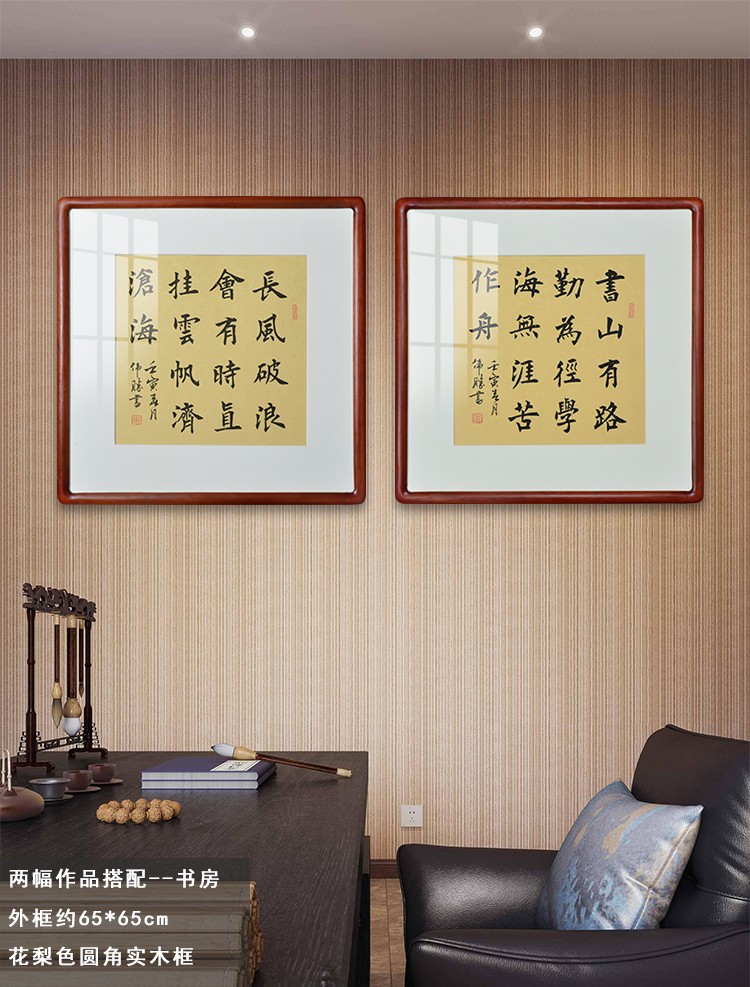 長風破浪
會有時直
挂雲帆濟
滄海
壬寅春月
伟書
書山有路
勤為徑學
海無涯苦
作舟
壬寅春月
伟書
两幅作品搭配--书房
外框约65*65cm
花梨色圆角实木框